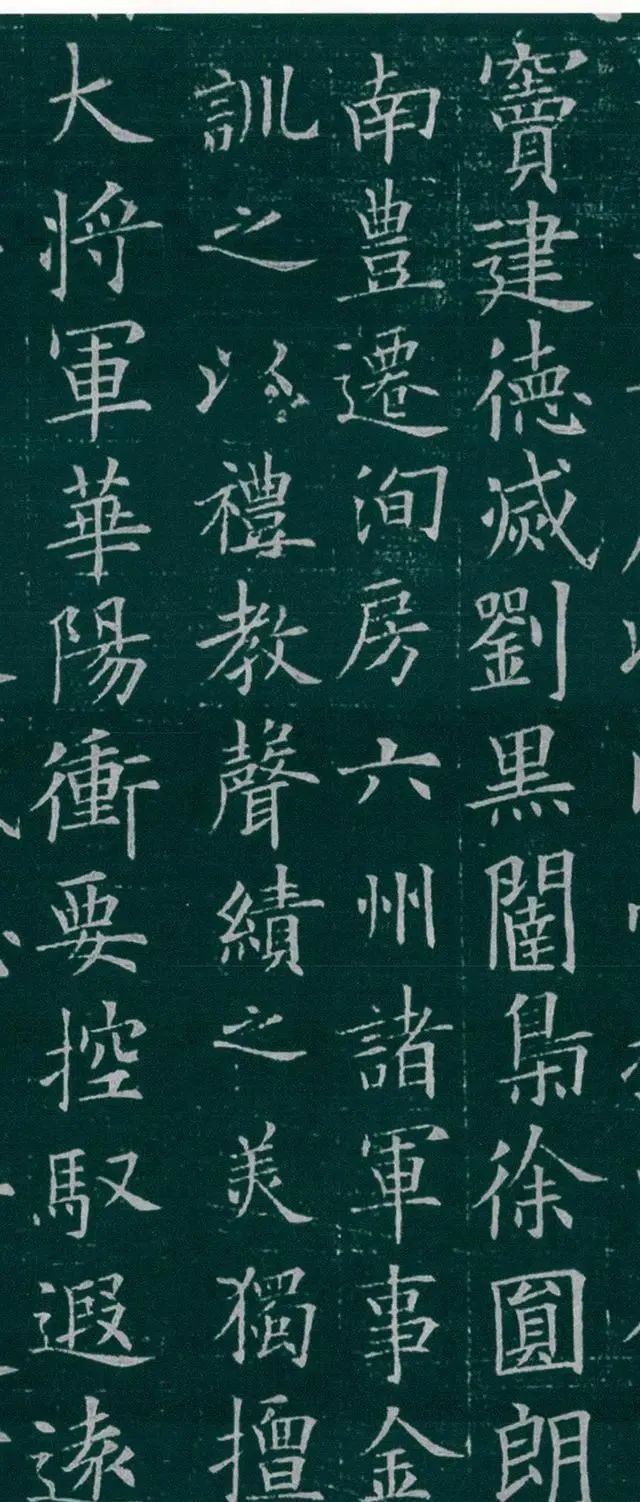 竇建德滅劉黒闥梟徐圓朗
南豊遷洵房六州諸軍事金
訓之以禮教聲績之美獨擅
大将軍華陽衝要控馭遐遠